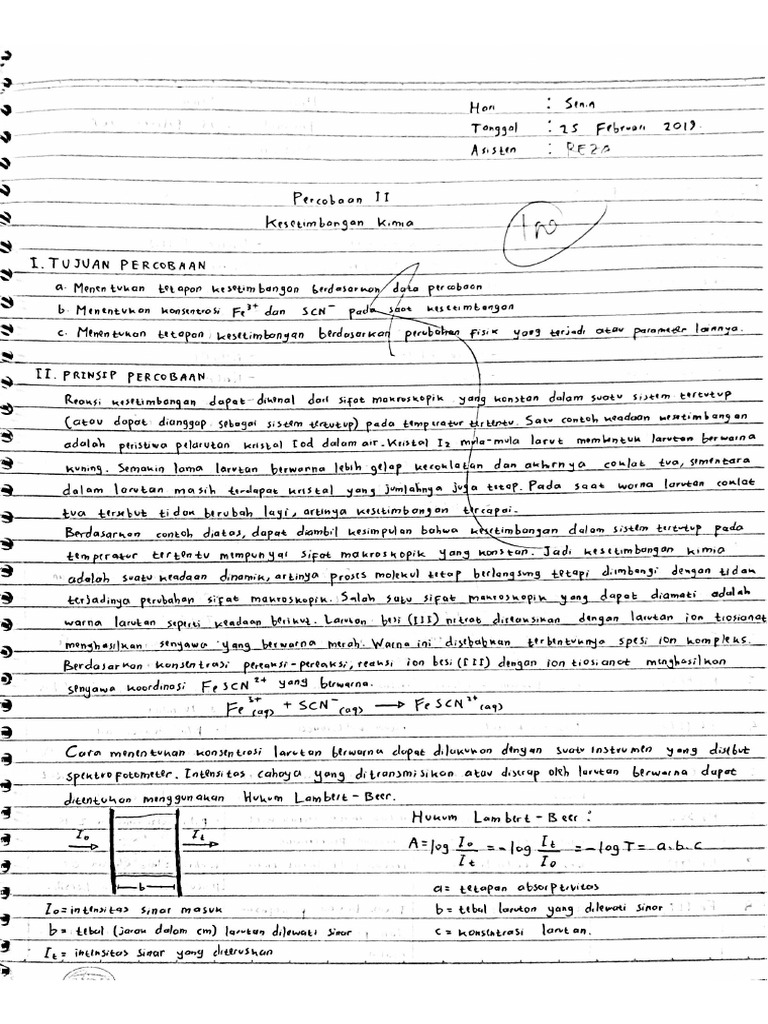 Hari : Senin
Tanggal : 25 Februari 2019.
Asisten : REZA
Percobaan II
Kesetimbangan Kimia
100
I. TUJUAN PERCOBAAN
a. Menentukan tetapan kesetimbangan berdasarkan data percobaan
b. Menentukan konsentrasi Fe³⁺ dan SCN⁻ pada saat kesetimbangan
c. Menentukan tetapan kesetimbangan berdasarkan perubahan fisik yang terjadi atau parameter lainnya.
II. PRINSIP PERCOBAAN
Reaksi kesetimbangan dapat dikenal dari sifat makroskopik yang konstan dalam suatu sistem tertutup
(atau dapat dianggap sebagai sistem tertutup) pada temperatur tertentu. Satu contoh keadaan kesetimbangan
adalah peristiwa pelarutan kristal Iod dalam air. Kristal I₂ mula-mula larut membentuk larutan berwarna
kuning. Semakin lama larutan berwarna lebih gelap kecoklatan dan akhirnya coklat tua, sementara
dalam larutan masih terdapat kristal yang jumlahnya juga tetap. Pada saat warna larutan coklat
tua tersebut tidak berubah lagi, artinya kesetimbangan tercapai.
Berdasarkan contoh diatas, dapat diambil kesimpulan bahwa kesetimbangan dalam sistem tertutup pada
temperatur tertentu mempunyai sifat makroskopik yang konstan. Jadi kesetimbangan kimia
adalah suatu keadaan dinamik, artinya proses molekul tetap berlangsung tetapi diimbangi dengan tidak
terjadinya perubahan sifat makroskopik. Salah satu sifat makroskopik yang dapat diamati adalah
warna larutan seperti keadaan berikut. Larutan besi (III) nitrat direaksikan dengan larutan ion tiosianat
menghasilkan senyawa yang berwarna merah. Warna ini disebabkan terbentuknya spesi ion kompleks.
Berdasarkan konsentrasi pereaksi-pereaksi, reaksi ion besi (III) dengan ion tiosianat menghasilkan
senyawa koordinasi FeSCN²⁺ yang berwarna.
Fe³⁺(aq) + SCN⁻(aq) → FeSCN²⁺(aq)
Cara menentukan konsentrasi larutan berwarna dapat dilakukan dengan suatu instrumen yang disebut
spektrofotometer. Intensitas cahaya yang ditransmisikan atau diserap oleh larutan berwarna dapat
ditentukan menggunakan Hukum Lambert-Beer.
I₀ Iₜ
b
Hukum Lambert-Beer :
A = log I₀/Iₜ = -log Iₜ/I₀ = -log T = a.b.c
a = tetapan absorptivitas
I₀ = intensitas sinar masuk
b = tebal larutan yang dilewati sinar
b = tebal (jarak dalam cm) larutan dilewati sinar
c = konsentrasi larutan.
Iₜ = intensitas sinar yang diteruskan